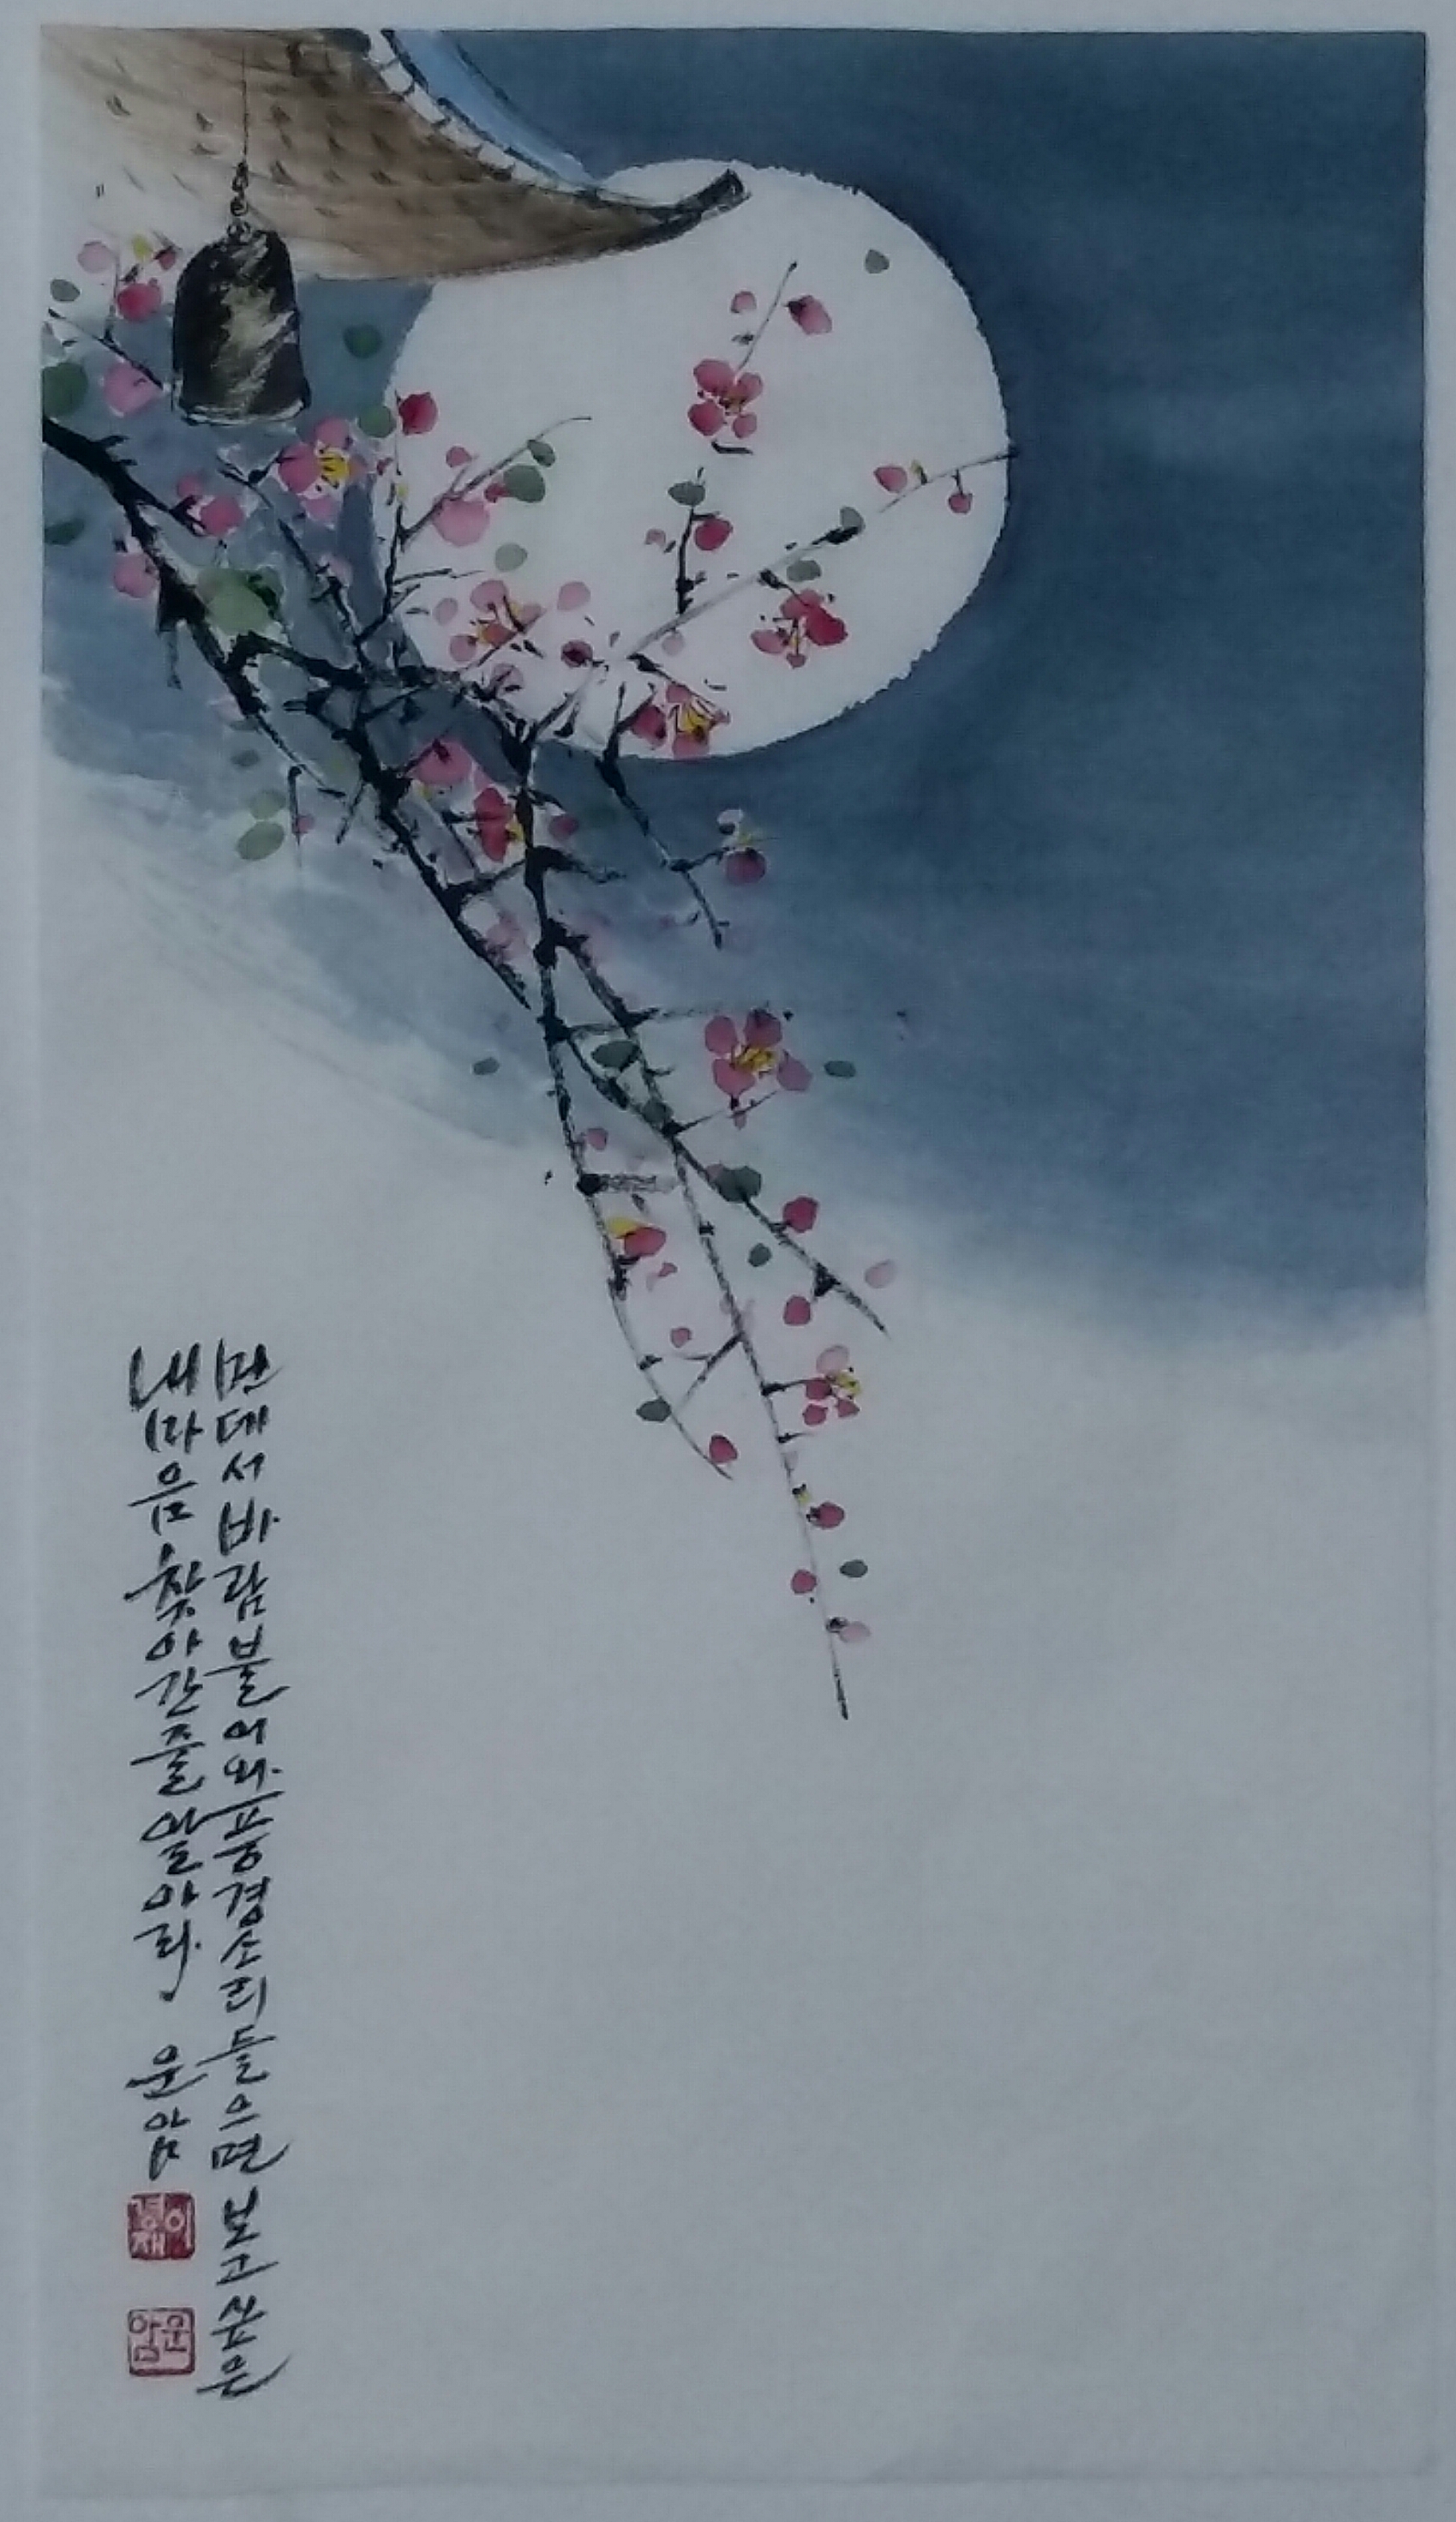 먼데서바람불어와풍경소리들으면 보고싶은
내마음찾아간줄알아라. 운암
이경재
운암